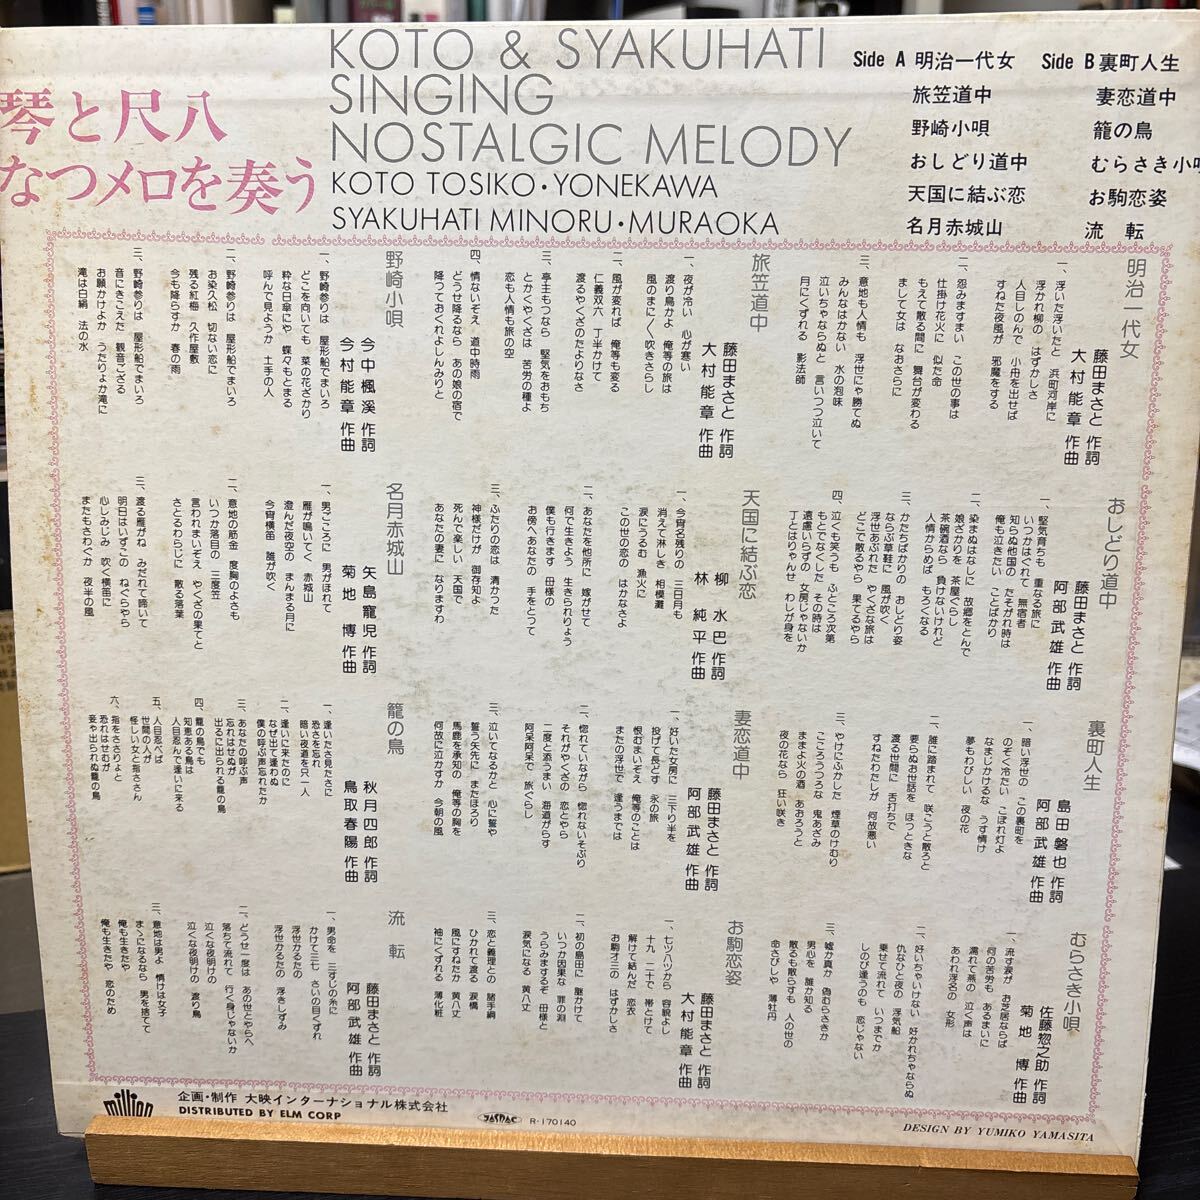 琴と尺八
なつメロを奏う
KOTO & SYAKUHATI
SINGING
NOSTALGIC MELODY
KOTO TOSIKO・YONEKAWA
SYAKUHATI MINORU・MURAOKA
Side A 明治一代女
旅笠道中
野崎小唄
おしどり道中
天国に結ぶ恋
名月赤城山
Side B 裏町人生
妻恋道中
籠の鳥
むらさき小唄
お駒恋姿
流転
明治一代女
藤田まさと 作詞
大村能章 作曲
一、浮いた浮いたと 浜町河岸に
浮かれ柳の はずかしさ
人目しのんで 小舟を出せば
すねた夜風が 邪魔をする
二、怨みますまい この世の事は
仕掛け花火に 似た命
もえて散る間に 舞台が変わる
まして女は なおさらに
三、意地も人情も 浮世にゃ勝てぬ
みんなはかない 水の泡味
泣いちゃならぬと 言いつつ泣いて
月にくずれる 影法師
旅笠道中
藤田まさと 作詞
大村能章 作曲
一、夜が冷い 心が寒い
渡り鳥かよ 俺等の旅は
風のまに〱 吹きさらし
二、風が変われば 俺等も変る
仁義双六 丁半かけて
渡るやくざのたよりなさ
三、亭主もつなら 堅気をおもち
とかくやくざは 苦労の種よ
恋も人情も旅の空
四、情ないぞえ 道中時雨
どうせ降るなら あの娘の宿で
降つておくれよしんみりと
野崎小唄
今中楓溪 作詞
今村能章 作曲
一、野崎参りは 屋形船でまいろ
どこを向いても 菜の花ざかり
粋な日傘にや 蝶々もとまる
呼んで見ようか 土手の人
二、野崎参りは 屋形船でまいろ
お染久松 切ない恋に
残る紅梅 久作屋敷
今も降らすか 春の雨
三、野崎参りは 屋形船でまいろ
音にきこえた 観音ござる
お願かけよか うたりょか滝に
滝は白絹 法の水
おしどり道中
藤田まさと 作詞
阿部武雄 作曲
一、堅気育ちも 重なる旅に
いつかはぐれて 無宿者
知らぬ他国の たそがれ時は
俺も泣きたい ことばかり
二、染まぬはなしに 故郷をとんで
娘ざかりを 茶屋ぐらし
茶碗酒なら 負けないけれど
人情からめば もろくなる
三、かたちばかりの おしどり姿
ならぶ草鞋に 風が吹く
浮世あぶれた やくざな旅は
どこで散るやら 果てるやら
四、泣くも笑うも ふところ次第
もとでなくした その時は
遠慮いらずの 女房じゃないか
丁とはりゃんせ わしが身を
天国に結ぶ恋
柳水巴 作詞
林純平 作曲
一、今宵名残りの 三日月も
消えて淋しき 相模灘
涙にうるむ 漁火に
この世の恋の はかなさよ
二、あなたを他所に 嫁がせて
何で生きよう 生きられりょう
僕も行きます 母様の
お傍へあなたの 手をとつて
三、ふたりの恋は 清かった
神様だけが 御存知よ
死んで楽しい 天国で
あなたの妻に なりますわ
名月赤城山
矢島寵児 作詞
菊地博 作曲
一、男ごころに 男がほれて
雁が鳴いてく 赤城山
澄んだ夜空の まんまる月に
今宵横笛 誰が吹く
二、意地の筋金 度胸のよさも
いつか落目の 三度笠
言われまいぞえ やくざの果てと
さとるわらじに 散る落葉
三、渡る雁がね みだれて啼いて
明日はいずこの ねぐらやら
心しみじみ 吹く横笛に
またもさわぐか 夜半の風
裏町人生
島田磬也 作詞
阿部武雄 作曲
一、暗い浮世の この裏町を
のぞく冷たい こぼれ灯よ
なまじかけるな うす情け
夢もわびしい 夜の花
二、誰に踏まれて 咲こうと散ろと
要らぬお世話を ほっときな
渡る世間に 舌打ちで
すねたわたしが 何故悪い
三、やけにふかした 煙草のけむり
こころうつろな 鬼あざみ
ままよ火の酒 あおろうと
夜の花なら 狂い咲き
妻恋道中
藤田まさと 作詞
阿部武雄 作曲
一、好いた女房に 三下り半を
投げて長どす 永の旅
恨むまいぞえ 俺等のことは
またの浮世で 逢うまでは
二、惚れていながら 惚れないそぶり
それがやくざの 恋とやら
二度と添うまい 海道がらす
阿呆阿呆で 旅ぐらし
三、泣いてなるかと 心に誓や
誓う矢先に またほろり
馬鹿を承知の 俺等の胸を
何故に泣かすか 今朝の風
籠の鳥
秋月四郎 作詞
鳥取春陽 作曲
一、逢いたさ見たさに
恐さを忘れ
暗い夜道を只一人
二、逢いに来たのに
なぜ出て逢わぬ
僕の呼ぶ声忘れたか
三、あなたの呼ぶ声
忘れはせぬが
出るに出られぬ籠の鳥
四、籠の鳥でも
知恵ある鳥は
人目忍んで逢いに来る
五、人目忍べば
世間の人が
怪しい女と指さん
六、指をさされりょと
恐れはせぬが
妾や出られぬ籠の鳥
むらさき小唄
佐藤惣之助 作詞
菊地博 作曲
一、流す涙が お芝居ならば
何の苦労も あるまいに
濡れて燕の 泣く声は
あわれ浮名の 女形
二、好いちゃいけない 好かれちゃならぬ
仇なひと夜の 浮気船
乗せて流れて いつまでか
しのび逢うのも 恋じゃない
三、嘘か真か 偽むらさきか
男心を 誰か知る
散るも散らすも 人の世の
命さびしや 薄牡丹
お駒恋姿
藤田まさと 作詞
大村能章 作曲
一、七ツハツから 容貌よし
十九、二十で 帯とけて
解けて結んだ 恋衣
お駒才三の はずかしさ
二、初の島田に 駈かけて
いつか因果な 罪の淵
うらみまするぞ 母様と
涙気になる 黄八丈
三、恋と義理との 諸手綱
ひかれて渡る 涙橋
風にすねたか 黄八丈
袖にくずれる 薄化粧
流転
藤田まさと 作詞
阿部武雄 作曲
一、男命を 三すじの糸に
かけて三七 さいの目くずれ
浮世かるたの
浮世かるたの 浮きしずみ
二、どうせ一度は あの世とやらへ
落ちて流れて 行く身じゃないか
泣くな夜明けの
泣くな夜明けの 渡り鳥
三、意地は男よ 情けは女子
まゝになるなら 男を捨てて
俺も生きたや
俺も生きたや 恋のため
million
企画・制作 大映インターナショナル株式会社
DISTRIBUTED BY ELM CORP
JASRAC
R-170140
DESIGN BY YUMIKO YAMASITA